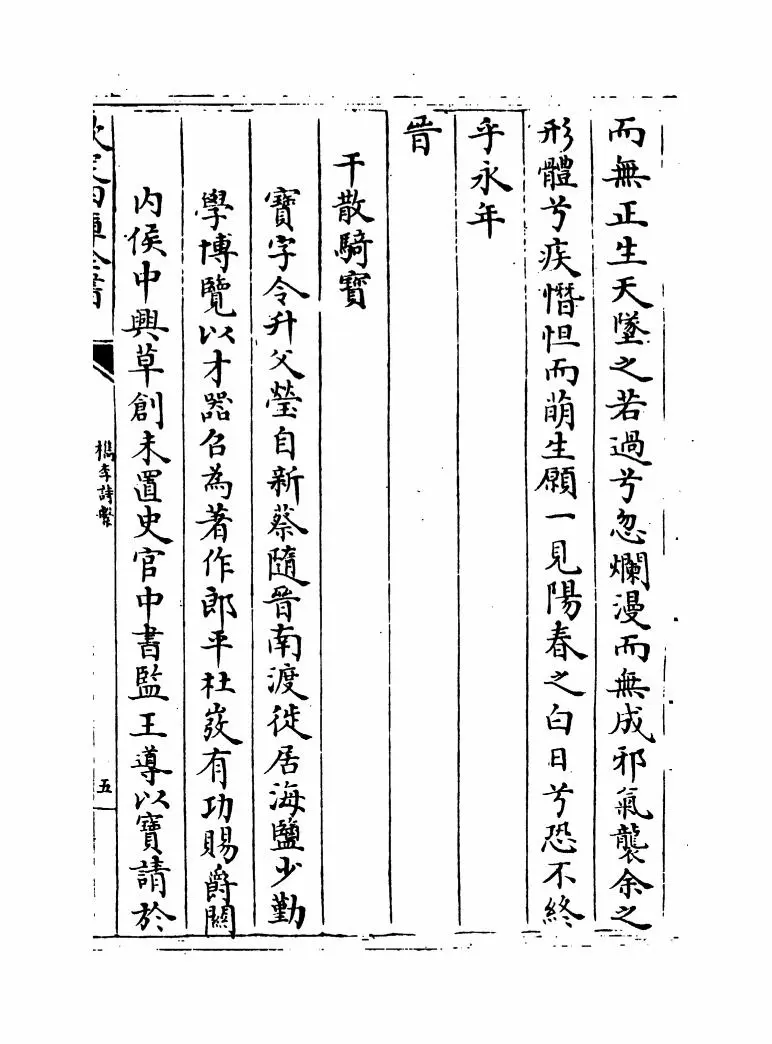 而無正生天墜之若過兮忽爛漫而無成邪氣襲余之
形體兮疾憯怛而萌生願一見陽春之白日兮恐不終
乎永年
晉
干散騎寶
寶字令升父瑩自新蔡隨晉南渡徙居海鹽少勤
學博覽以才器召為著作郎平杜弢有功賜爵關
内侯中興草創未置史官中書監王導以寶請於
欽定四庫全書
檇李詩繫
五